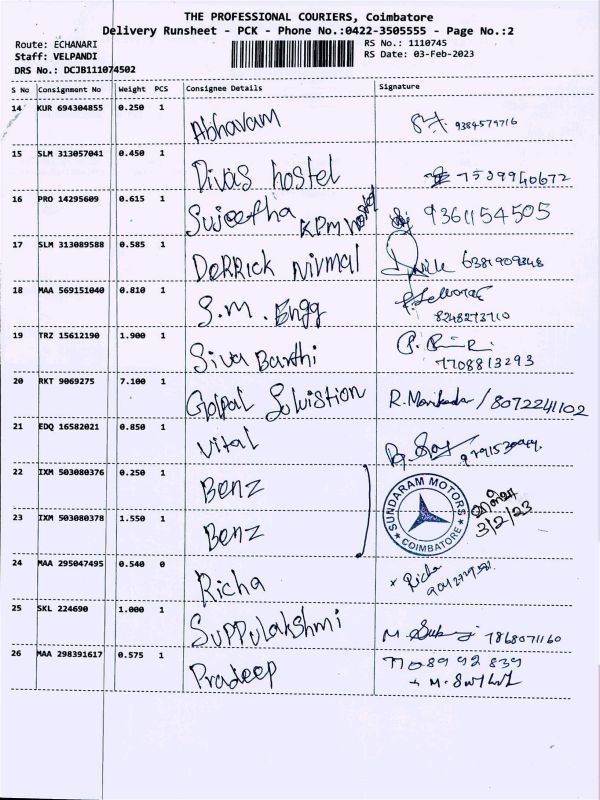 THE PROFESSIONAL COURIERS, Coimbatore
Delivery Runsheet - PCK - Phone No.:0422-3505555 - Page No.:2
Route: ECHANARI
RS No.: 1110745
Staff: VELPANDI
RS Date: 03-Feb-2023
DRS No.: DCJB111074502
S No Consignment No Weight PCS Consignee Details Signature
14 KUR 694304855 0.250 1 Abhavam 9384579716
15 SLM 313057041 0.450 1 Divas hostel 7539940672
16 PRO 14295609 0.615 1 Sujeetha KPM hostel 9361154505
17 SLM 313089588 0.585 1 DERRICK Nirmal 6381909348
18 MAA 569151040 0.810 1 S.M. Engg 8248273710
19 TRZ 15612190 1.900 1 Siva Barthi 7708813293
20 RKT 9069275 7.100 1 Golpal Solvistion R. Manikanda / 8072241102
21 EDQ 16582021 0.850 1 Vital
22 IXM 503080376 0.250 1 Benz
SUNDARAM MOTORS
COIMBATORE
3/2/23
23 IXM 503080378 1.550 1 Benz
24 MAA 295047495 0.540 0 Richa Richa
25 SKL 224690 1.000 1 Suppulakshmi 7868071160
26 MAA 298391617 0.575 1 Pradeep 7708992839